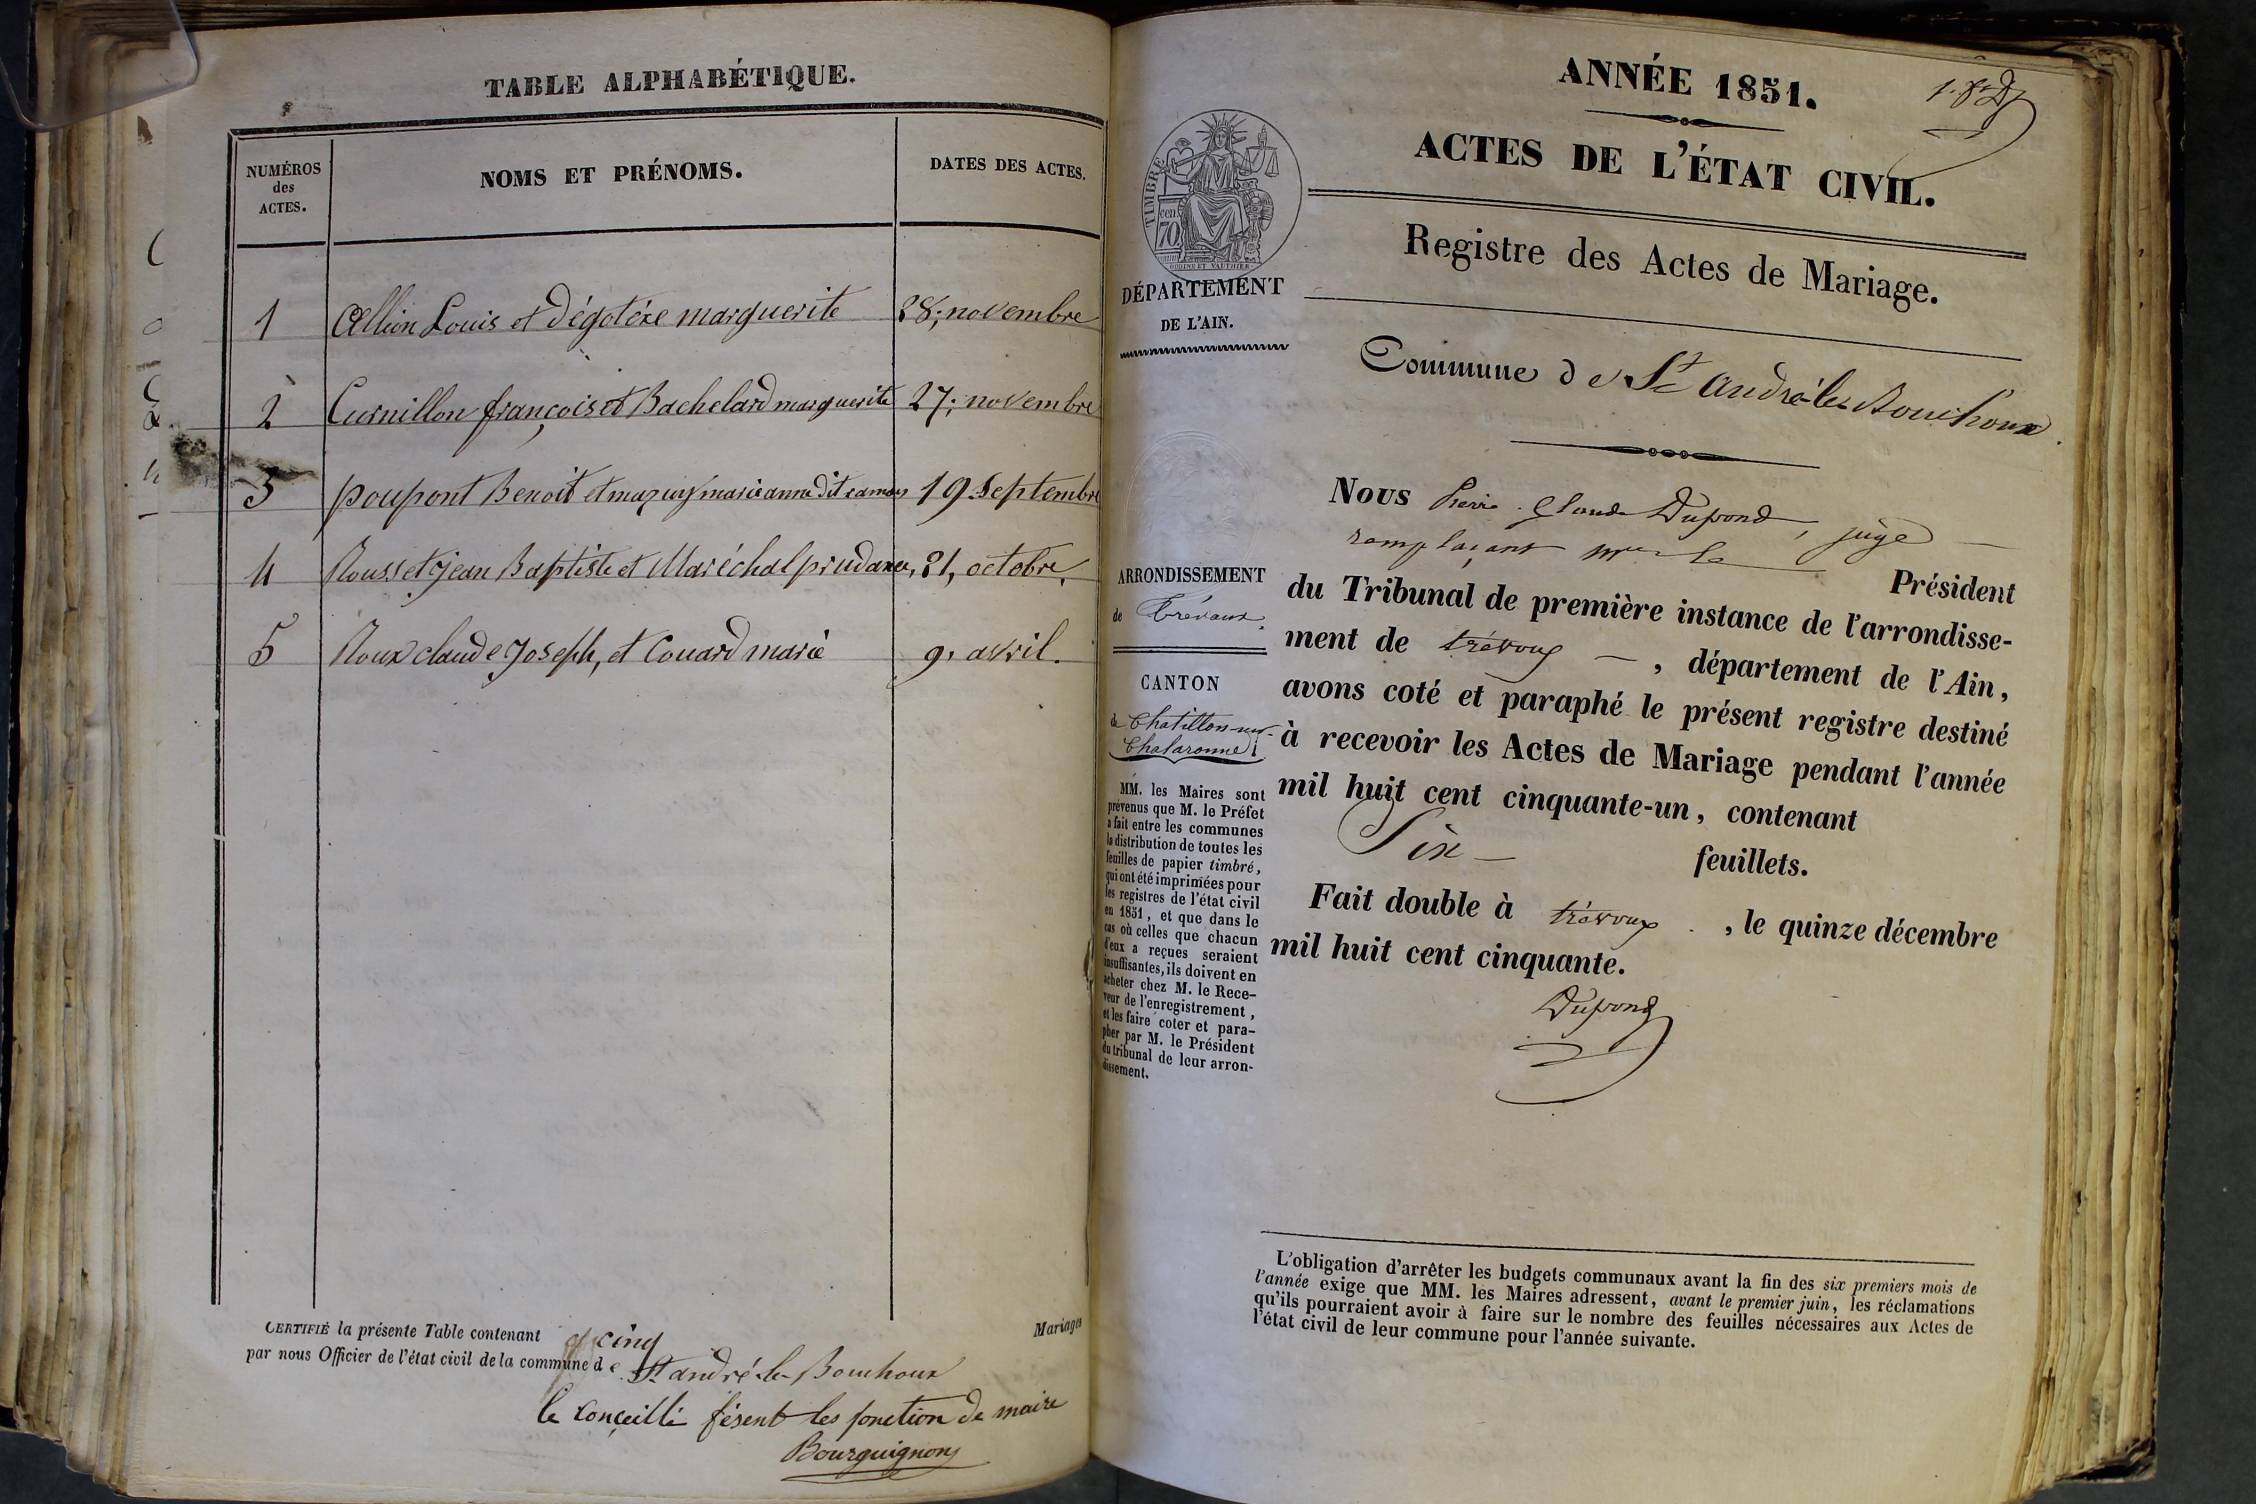 TABLE ALPHABÉTIQUE.
NUMÉROS
des
ACTES.
NOMS ET PRÉNOMS.
DATES DES ACTES.
1 Louis et dégotéxe marguerite 28; novembre
2 Curnillon françois et Bachelard marguerite 27; novembre
3 poupont Benoit et mazuy marie anne dit 19 Septembre
4 Rousset jean Baptiste et Maréchal prudance, 21, octobre,
5 Roux claude Joseph, et Couard marie 9, avril.
CERTIFIÉ la présente Table contenant cinq
Mariages
par nous Officier de l'état civil de la commune de St andré-le-Bouchoux
le conçeillé fésent les fonction de maire
Bourguignon
ANNÉE 1851.
ACTES DE L'ÉTAT CIVIL.
TIMBRE
cen.
70
OUDINE ET VAUTHIER
Registre des Actes de Mariage.
DÉPARTEMENT
DE L'AIN.
Commune de St andré-le-Bouchoux.
Nous Pierre Claude Dupond, juge
remplaçant Mr le Président
du Tribunal de première instance de l'arrondisse-
ment de trévoux, département de l'Ain,
avons coté et paraphé le présent registre destiné
à recevoir les Actes de Mariage pendant l'année
mil huit cent cinquante-un, contenant
Six feuillets.
Fait double à trévoux, le quinze décembre
mil huit cent cinquante.
Dupond
ARRONDISSEMENT
de Trévoux.
CANTON
de Chatillon-sur-
Chalaronne
MM. les Maires sont
prévenus que M. le Préfet
a fait entre les communes
la distribution de toutes les
feuilles de papier timbré,
qui ont été imprimées pour
les registres de l'état civil
en 1851, et que dans le
cas où celles que chacun
d'eux a reçues seraient
insuffisantes, ils doivent en
acheter chez M. le Rece-
veur de l'enregistrement,
et les faire coter et para-
pher par M. le Président
du tribunal de leur arron-
dissement.
L'obligation d'arrêter les budgets communaux avant la fin des six premiers mois de
l'année exige que MM. les Maires adressent, avant le premier juin, les réclamations
qu'ils pourraient avoir à faire sur le nombre des feuilles nécessaires aux Actes de
l'état civil de leur commune pour l'année suivante.